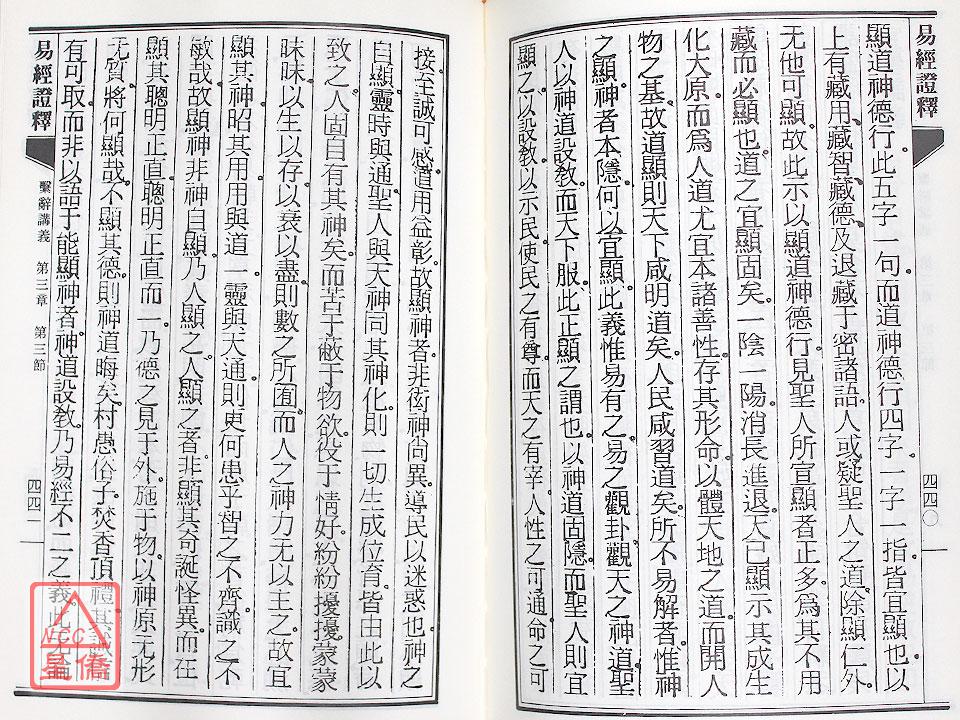 易經證釋
四四〇
顯道神德行。此五字一句。而道神德行四字。一字一指。皆宜顯也。以
上有藏用。藏智。藏德。及退藏于密諸語。人或疑聖人之道。除顯仁外。
无他可顯。故此示以顯道神德行。見聖人所宣顯者正多。為其不用
藏而必顯也。道之宜顯固矣。一陰一陽。消長進退。天已顯示其成生
化大原。而為人道尤宜本諸善性。存其形命。以體天地之道。而開人
物之基。故道顯則天下咸明道矣。人民咸習道矣。所不易解者。惟神
之顯。神者本隱。何以宜顯。此義惟易有之。易之觀卦。觀天之神道。聖
人以神道設教。而天下服。此正顯之謂也。以神道固隱。而聖人則宜
顯之以設教。以示民。使民之有尊。而天之有宰。人性之可通。命之可
接。至誠可感。道用益彰。故顯神者。非衒神尚異。導民以迷惑也。神之
自顯。靈時與通。聖人與天神同其神化。則一切生成位育。皆由此以
致之。人固自有其神矣。而苦于蔽于物欲。役于情好。紛紛擾擾。蒙蒙
昧昧。以生以存。以衰以盡。則數之所囿。而人之神力无以主之。故宜
顯其神。昭其用。用與道一。靈與天通。則更何患乎智之不齊。識之不
敏哉。故顯神非神自顯。乃人顯之。人顯之者。非顯其奇誕怪異。而在
顯其聰明正直。聰明正直而一。乃德之見于外。施于物。以神原无形
无質。將何顯哉。不顯其德。則神道晦矣。村愚俗子。焚香頂禮。其誠
有可取。而非以語于能顯神者。神道設教。乃易經不二之義。此
易經證釋
繫辭講義 第三章 第三節
四四一
NCC
論僑